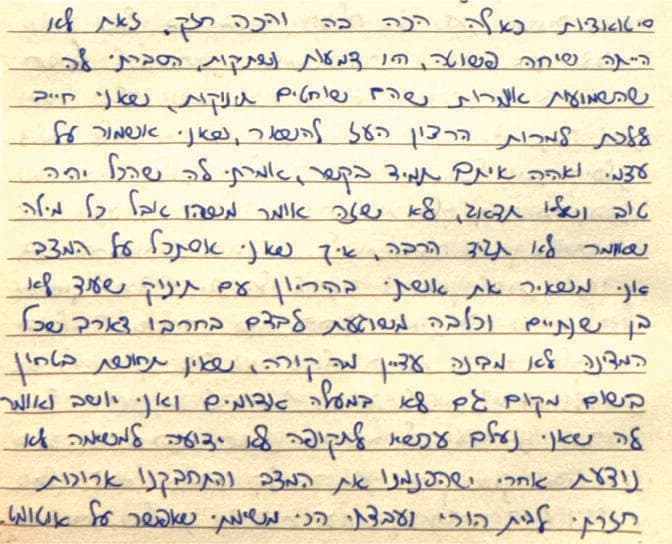 סיטואציות כאלה הכה בה והכה חזק, זאת לא
הייתה שיחה פשוטה, היו דמעות ושתקות, הסברתי לה
שהשמועות אומרות שהם שוחטים תינוקות, ושאני חייב
ללכת למרות הרצון העז להישאר, ושאני אשמור על
עצמי ואהיה איתם תמיד בקשר, אמרתי לה שהכל יהיה
טוב ושלא תדאג, לא שזה אומר משהו אבל כל מילה
שאומר לא תגיד הרבה, איך שאני אסתכל על המצב
אני משאיר את אשתי בהריון עם תינוק שעוד לא
בן שנתיים וכלבה משוגעת לבדם בחרבו דארבו שכל
המדינה לא מבינה עדיין מה קורה, ושאין תחושת בטחון
בשום מקום גם לא במעלה אדומים ואני יושב ואומר
לה שאני נעלם עכשיו לתקופה לא ידועה למשימה לא
נודעת אחרי שהפנמנו את המצב והתחבקנו ארוכות
חזרתי לבית הורי ועבדתי הכי משימתי שאפשר על אוטומט.